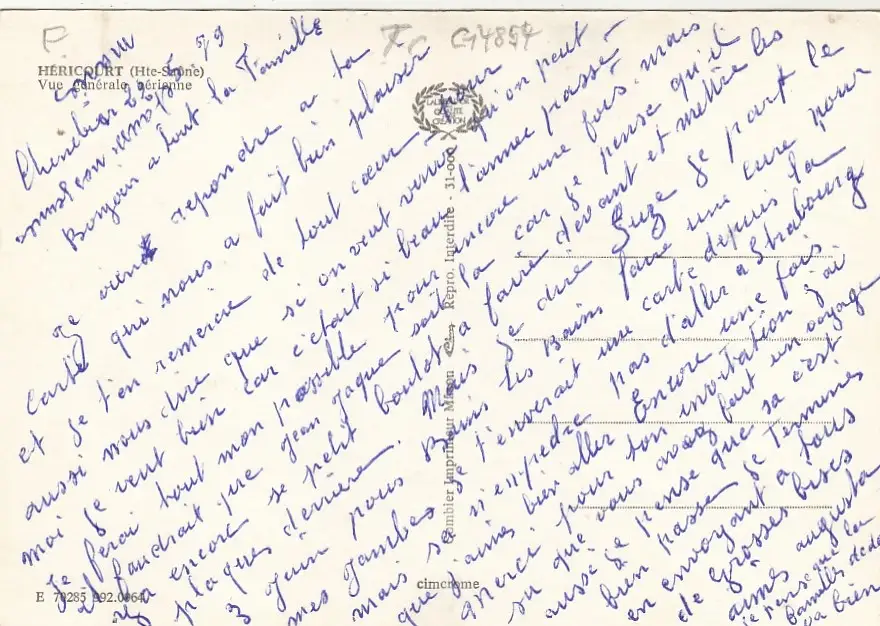 F
Tc C14857
HÉRICOURT (Hte-Saône)
Vue générale aérienne
Chenebier
Bonjour a tout la Famille
Je viens repondre a ta
carte qui nous a fait bien plaisir
et je t'en remercie de tout cœur pour
aussi nous dire que si on veut venir qu'on peut
moi je veut bien car c'était si beau l'annee passé
Je ferai tout mon possible pour encore une fois. mais
il faudrait que Jean Jaque soit la car je pense qu'il
y a encore se petit boulot a faire devant et mettre les
plaques derrière. Mais je dire Suze je part le
3 Juin pour Bains les Bains faire une cure pour
mes jambes je t'enverait une carte depuis la
mais sa n'enpedre pas d'aller a Strabourg
que j'aime bien aller Encore une fois
Merci pour ton invitation j'ai
su que vous avez fait un voyage
aussi je pense que sa c'est
bien passé Je Termines
en envoyant a tous
de Grosses bises
aimes augusta
je pense que la
famille dede
va bien
Combier Imprimeur Mâcon
Repro. Interdite - 31-000
cimcrome
E 70285 992.0064